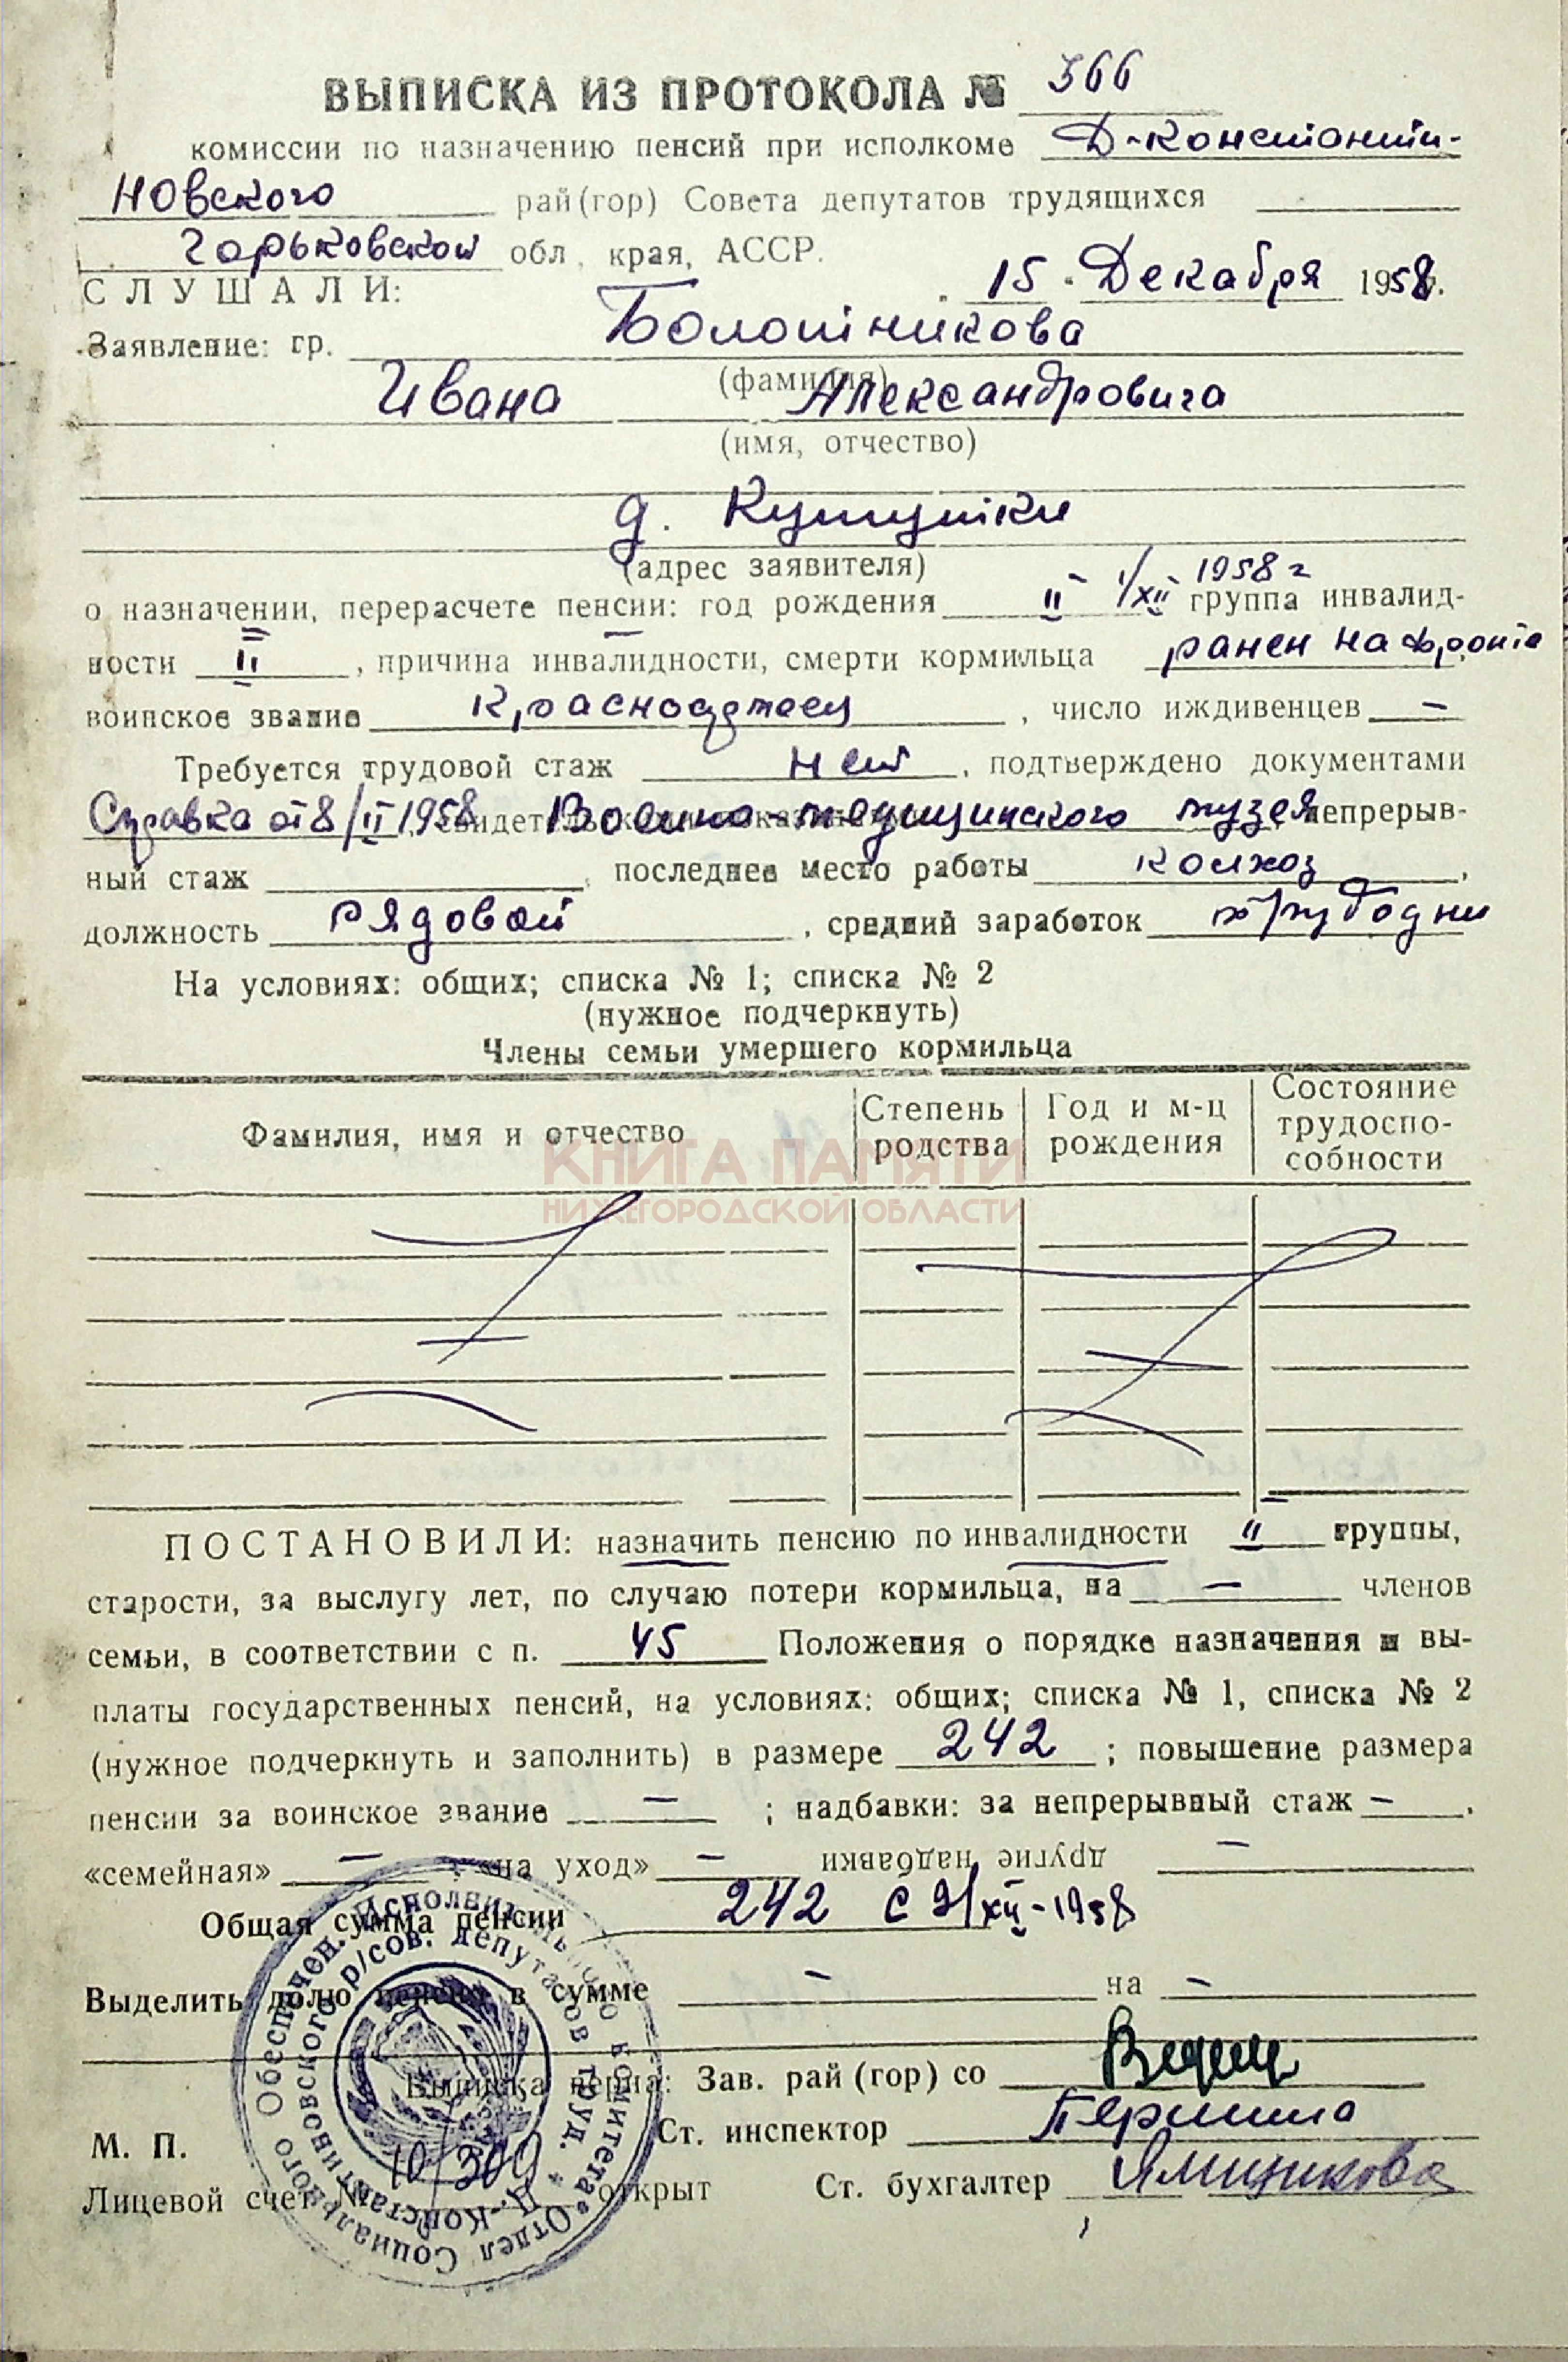 ВЫПИСКА ИЗ ПРОТОКОЛА № 366
комиссии по назначению пенсий при исполкоме Д-Константи-
новского рай(гор) Совета депутатов трудящихся
Горьковской обл, края, АССР.
СЛУШАЛИ: 15 Декабря 1958.
Заявление: гр. Болотникова
(фамилия)
Ивана Александровича
(имя, отчество)
д.
(адрес заявителя)
1958 г
о назначении, перерасчете пенсии: год рождения II 1/XII группа инвалид-
ности II, причина инвалидности, смерти кормильца ранен на фронте
воинское звание Красноармеец, число иждивенцев —
Требуется трудовой стаж нет, подтверждено документами
Справка от 8/II 1958 Военно-медицинского музея непрерыв-
ный стаж , последнее место работы колхоз,
должность рядовой, средний заработок трудодни
На условиях: общих; списка № 1; списка № 2
(нужное подчеркнуть)
Члены семьи умершего кормильца
Фамилия, имя и отчество Степень родства Год и м-ц рождения Состояние трудоспо-собности
КНИГА ПАМЯТИ
НИЖЕГОРОДСКОЙ ОБЛАСТИ
ПОСТАНОВИЛИ: назначить пенсию по инвалидности II группы,
старости, за выслугу лет, по случаю потери кормильца, на — членов
семьи, в соответствии с п. 45 Положения о порядке назначения и вы-
платы государственных пенсий, на условиях: общих; списка № 1, списка № 2
(нужное подчеркнуть и заполнить) в размере 242; повышение размера
пенсии за воинское звание —; надбавки: за непрерывный стаж —,
«семейная» —, «на уход» — другие надбавки —
Общая сумма пенсии 242 с XII-1958
Выделить долю пенсии в сумме — на —
Выписка верна: Зав. рай (гор) со
М. П. Ст. инспектор Першина
Лицевой счет № 10/309 открыт Ст. бухгалтер Ямщикова
Отдел Социального Обеспечен. Исполнительного комитета
Д.-Константиновского р/сов. депутатов труд.